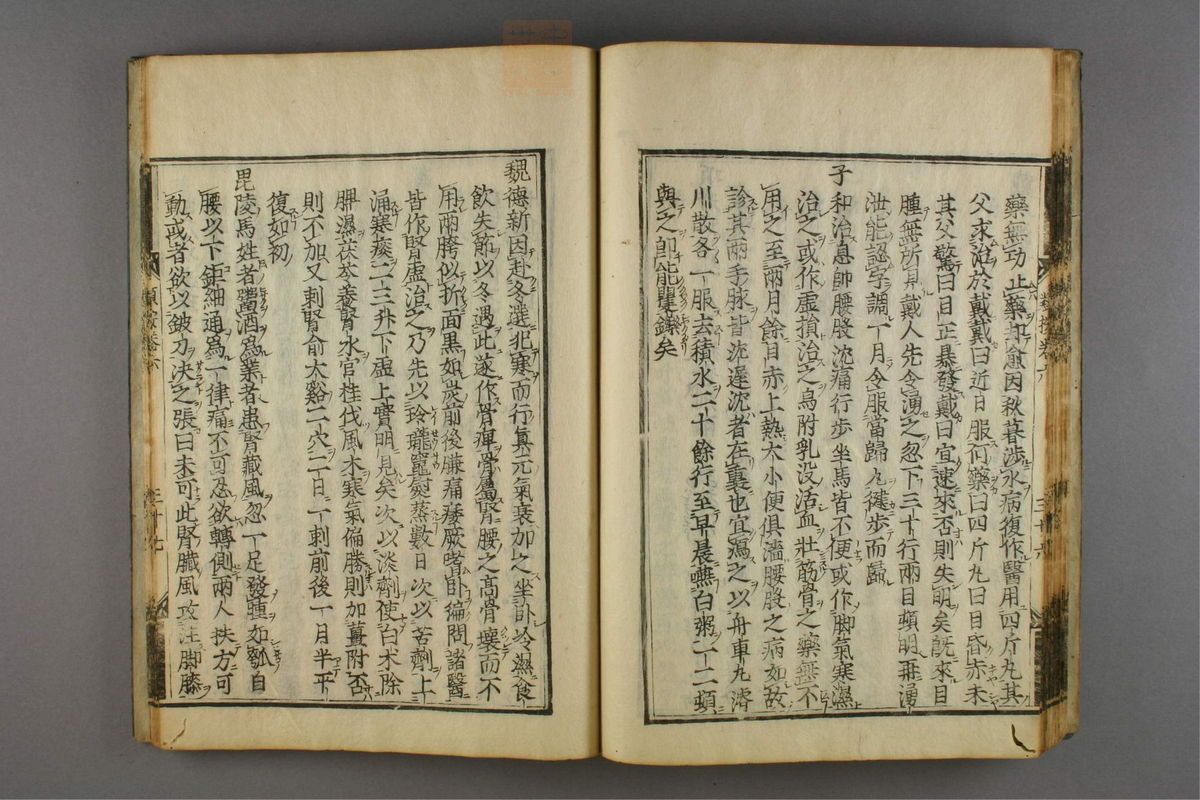 藥無功止藥却愈因秋暮渉水病復作醫用四斤丸其
父求治於戴戴曰近日服何藥曰四斤丸曰目昏赤未
其父驚曰目正暴發戴曰宜速來否則失明矣既來目
腫無所見戴人先令涌之忽下三十行兩目頓明再涌
泄能認字調一月令服當歸丸健步而歸
子和治息帥腰股沈痛行步坐馬皆不便或作脚氣寒濕
治之或作虚損治之烏附乳没活血壯筋骨之藥無不
用之至兩月餘目赤上熱大小便俱濇腰股之病如故
診其兩手脉皆沈遲沈者在裏也宜瀉之以舟車丸濬
川散各一服去積水二十餘行至早晨嚥白粥一二頓
與之即能矍鑠矣
魏德新因赴冬選犯寒而行真元氣衰加之坐臥冷濕食
飲失節以冬遇此遂作骨痺骨屬腎腰之高骨壞而不
用兩胯似折面黒如炭前後臁痛痿厥嗜臥徧問諸醫
皆作腎虚治之乃先以玲瓏竈熨蒸數日次以苦劑上
涌寒痰二三升下虚上實明見矣次以淡劑使白朮除
脾濕茯苓養腎水官桂伐風木寒氣偏勝則加薑附否
則不加又刺腎俞太谿二穴二日一刺前後一月半平
復如初
毘陵馬姓者鬻酒爲業者患腎藏風忽一足發腫如瓠自
腰以下鉅細通爲一律痛不可忍欲轉側兩人扶方可
動或者欲以鈹刀决之張曰未可此腎臟風攻注脚膝
類案卷六
三十七